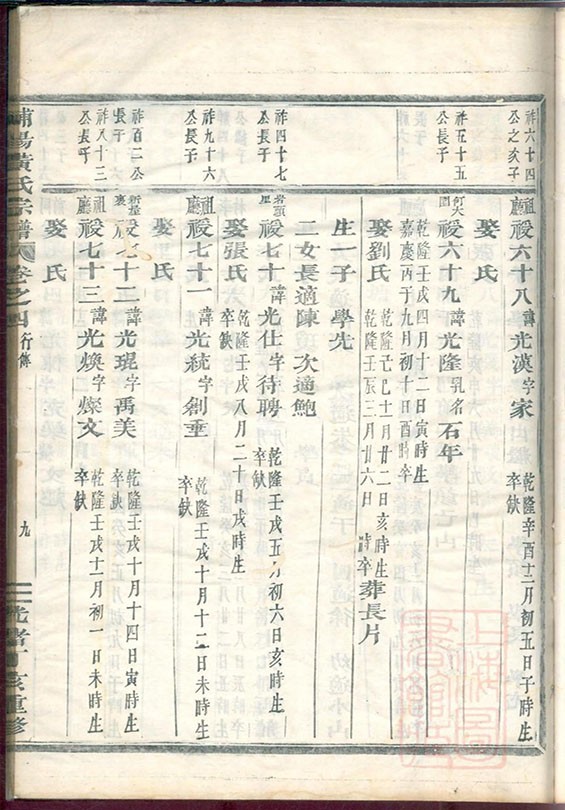 祚六十四
公之次子
祖廳
祾六十八
諱光漢字家
乾隆辛酉十二月初五日子時生
卒缺
娶 氏
祚五十五
公長子
何大園
祾六十九
諱光隆乳名石年
乾隆壬戌四月十二日寅時生
嘉慶丙子九月初十日酉時卒
娶劉氏
乾隆己巳十月廿二日亥時生
乾隆壬辰三月廿六日 時卒
葬長片
生一子 學先
二女長適陳 次適鮑
祚四十七
公長子
祾七十
諱光仕字待聘
乾隆壬戌五月初六日亥時生
卒缺
娶張氏
乾隆壬戌八月二十日戌時生
卒缺
祚九十六
公長子
祖廳
祾七十一
諱光統字創垂
乾隆壬戌十月十二日未時生
卒缺
娶 氏
祚百二公
長子
祾七十二
諱光琨字禹美
乾隆壬戌十月十四日寅時生
卒缺
祚八十三
公長子
祖廳
祾七十三
諱光煥字燦文
乾隆壬戌十一月初一日未時生
卒缺
娶 氏
浦陽黃氏宗譜 卷之四 行傳 九 光緒丁亥重修
上海圖書館藏